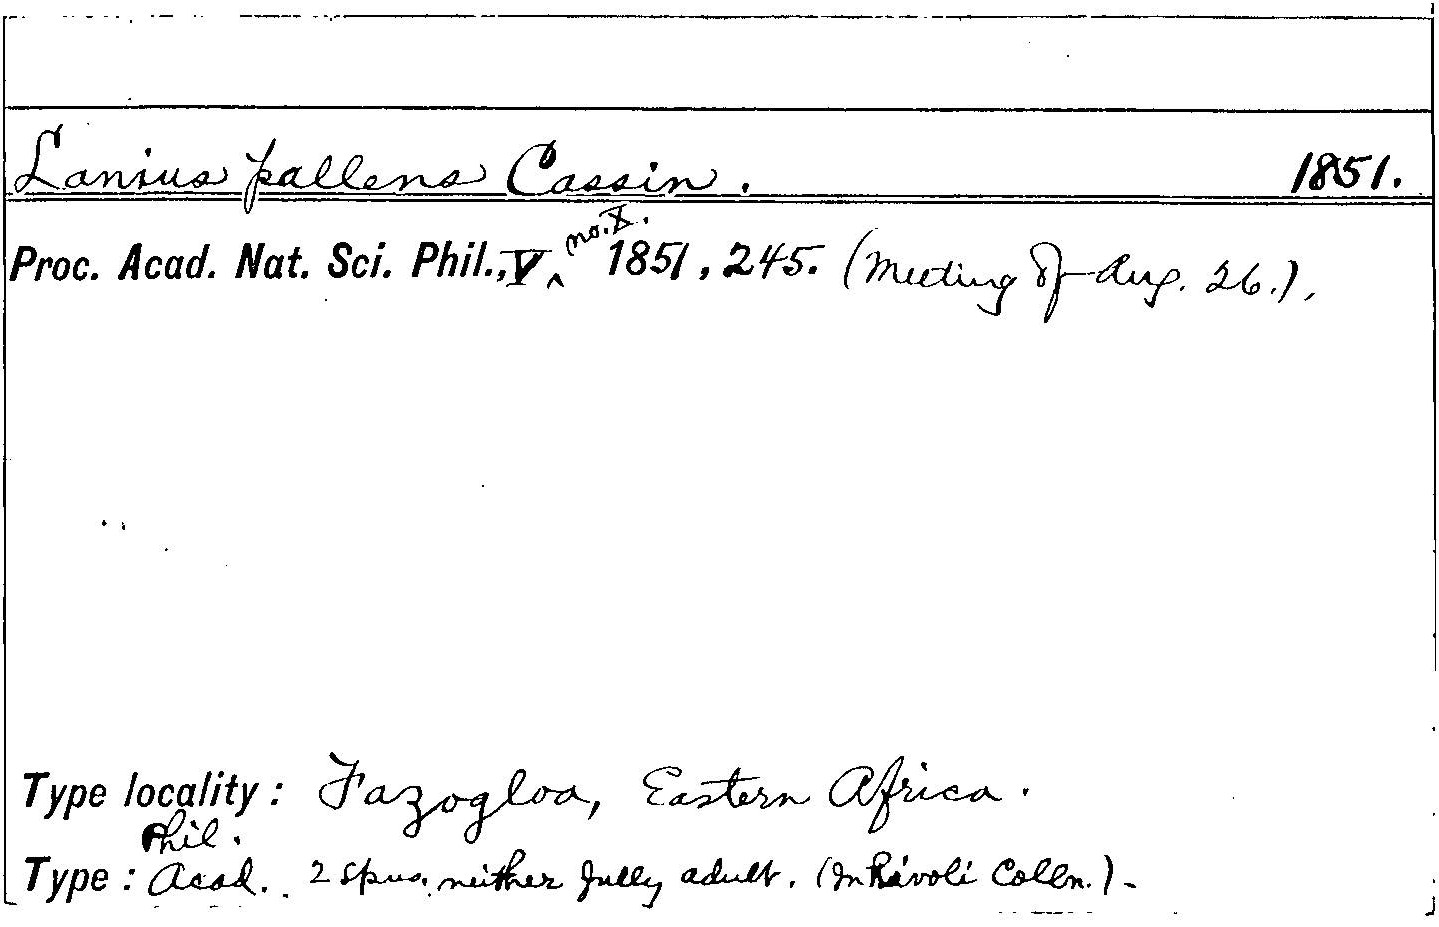 Lanius pallens Cassin. 1851.
Proc. Acad. Nat. Sci. Phil., V ^ no. X. 1851, 245. (Meeting of Aug. 26.),
Type locality: Fazogloa, Eastern Africa.
Phil.
Type: Acad. 2 spns. neither fully adult. (In Rivoli Colln.) -